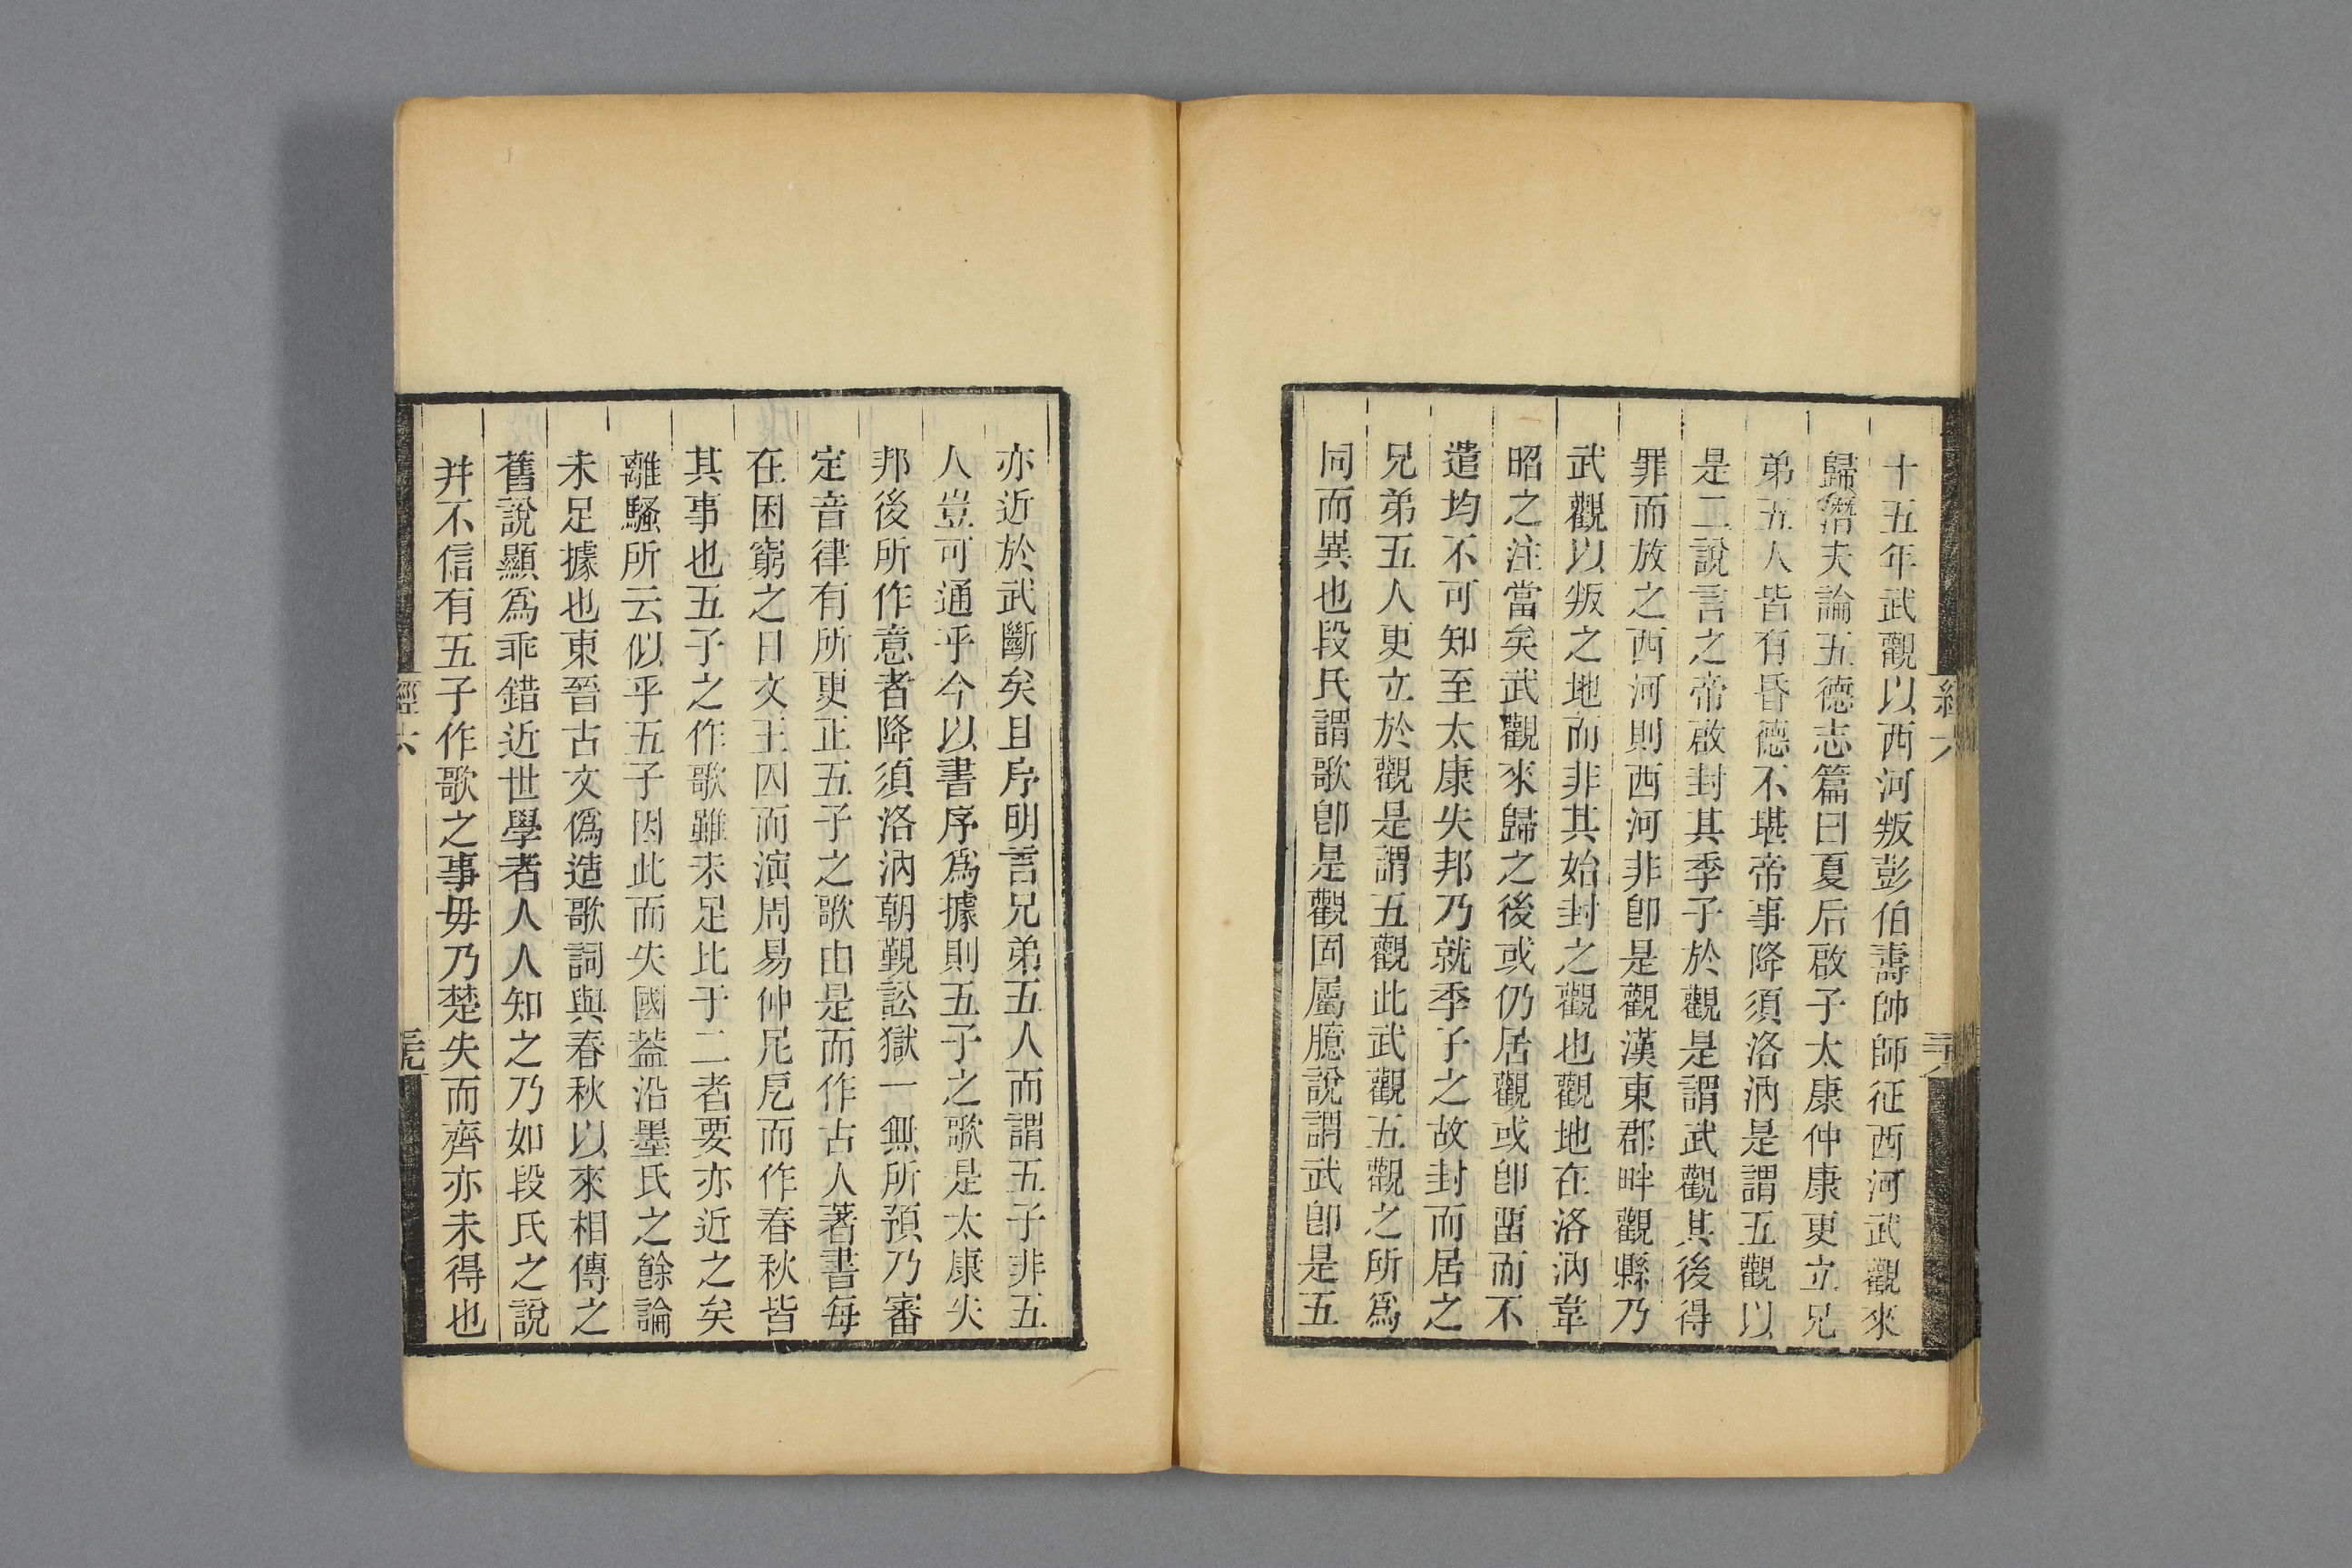 十五年武觀以西河叛彭伯壽帥師征西河武觀來
歸潛夫論五德志篇曰夏后啟子太康仲康更立兄
弟五人皆有昏德不堪帝事降須洛汭是謂五觀以
是二說言之帝啟封其季子於觀是謂武觀其後得
罪而放之西河則西河非卽是觀漢東郡畔觀縣乃
武觀以叛之地而非其始封之觀也觀地在洛汭韋
昭之注當矣武觀來歸之後或仍居觀或卽畱而不
遣均不可知至太康失邦乃就季子之故封而居之
兄弟五人更立於觀是謂五觀此武觀五觀之所爲
同而異也段氏謂歌卽是觀固屬臆說謂武卽是五
經六
亦近於武斷矣且序明言兄弟五人而謂五子非五
人豈可通乎今以書序爲據則五子之歌是太康失
邦後所作意者降須洛汭朝覲訟獄一無所預乃審
定音律有所更正五子之歌由是而作古人著書每
在困窮之日文王囚而演周易仲尼戹而作春秋皆
其事也五子之作歌雖未足比于二者要亦近之矣
離騷所云似乎五子因此而失國葢沿墨氏之餘論
未足據也東晉古文僞造歌詞與春秋以來相傳之
舊說顯爲乖錯近世學者人人知之乃如段氏之說
并不信有五子作歌之事毋乃楚失而齊亦未得也
經六